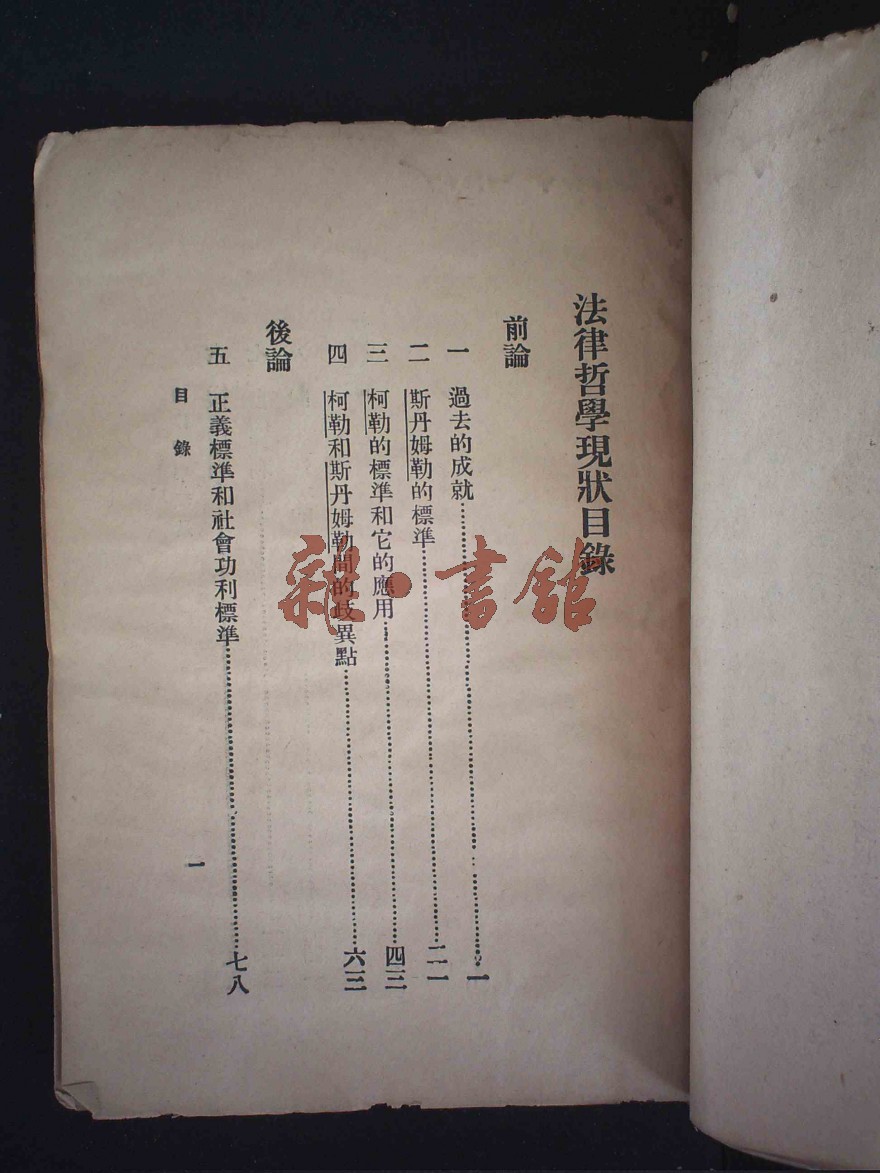 法律哲學現狀目錄
前論
一 過去的成就……一
二 斯丹姆勒的標準……二一
三 柯勒的標準和它的應用……四三
四 柯勒和斯丹姆勒間的歧異點……六三
後論
五 正義標準和社會功利標準……七八
目錄
一
雜·書館